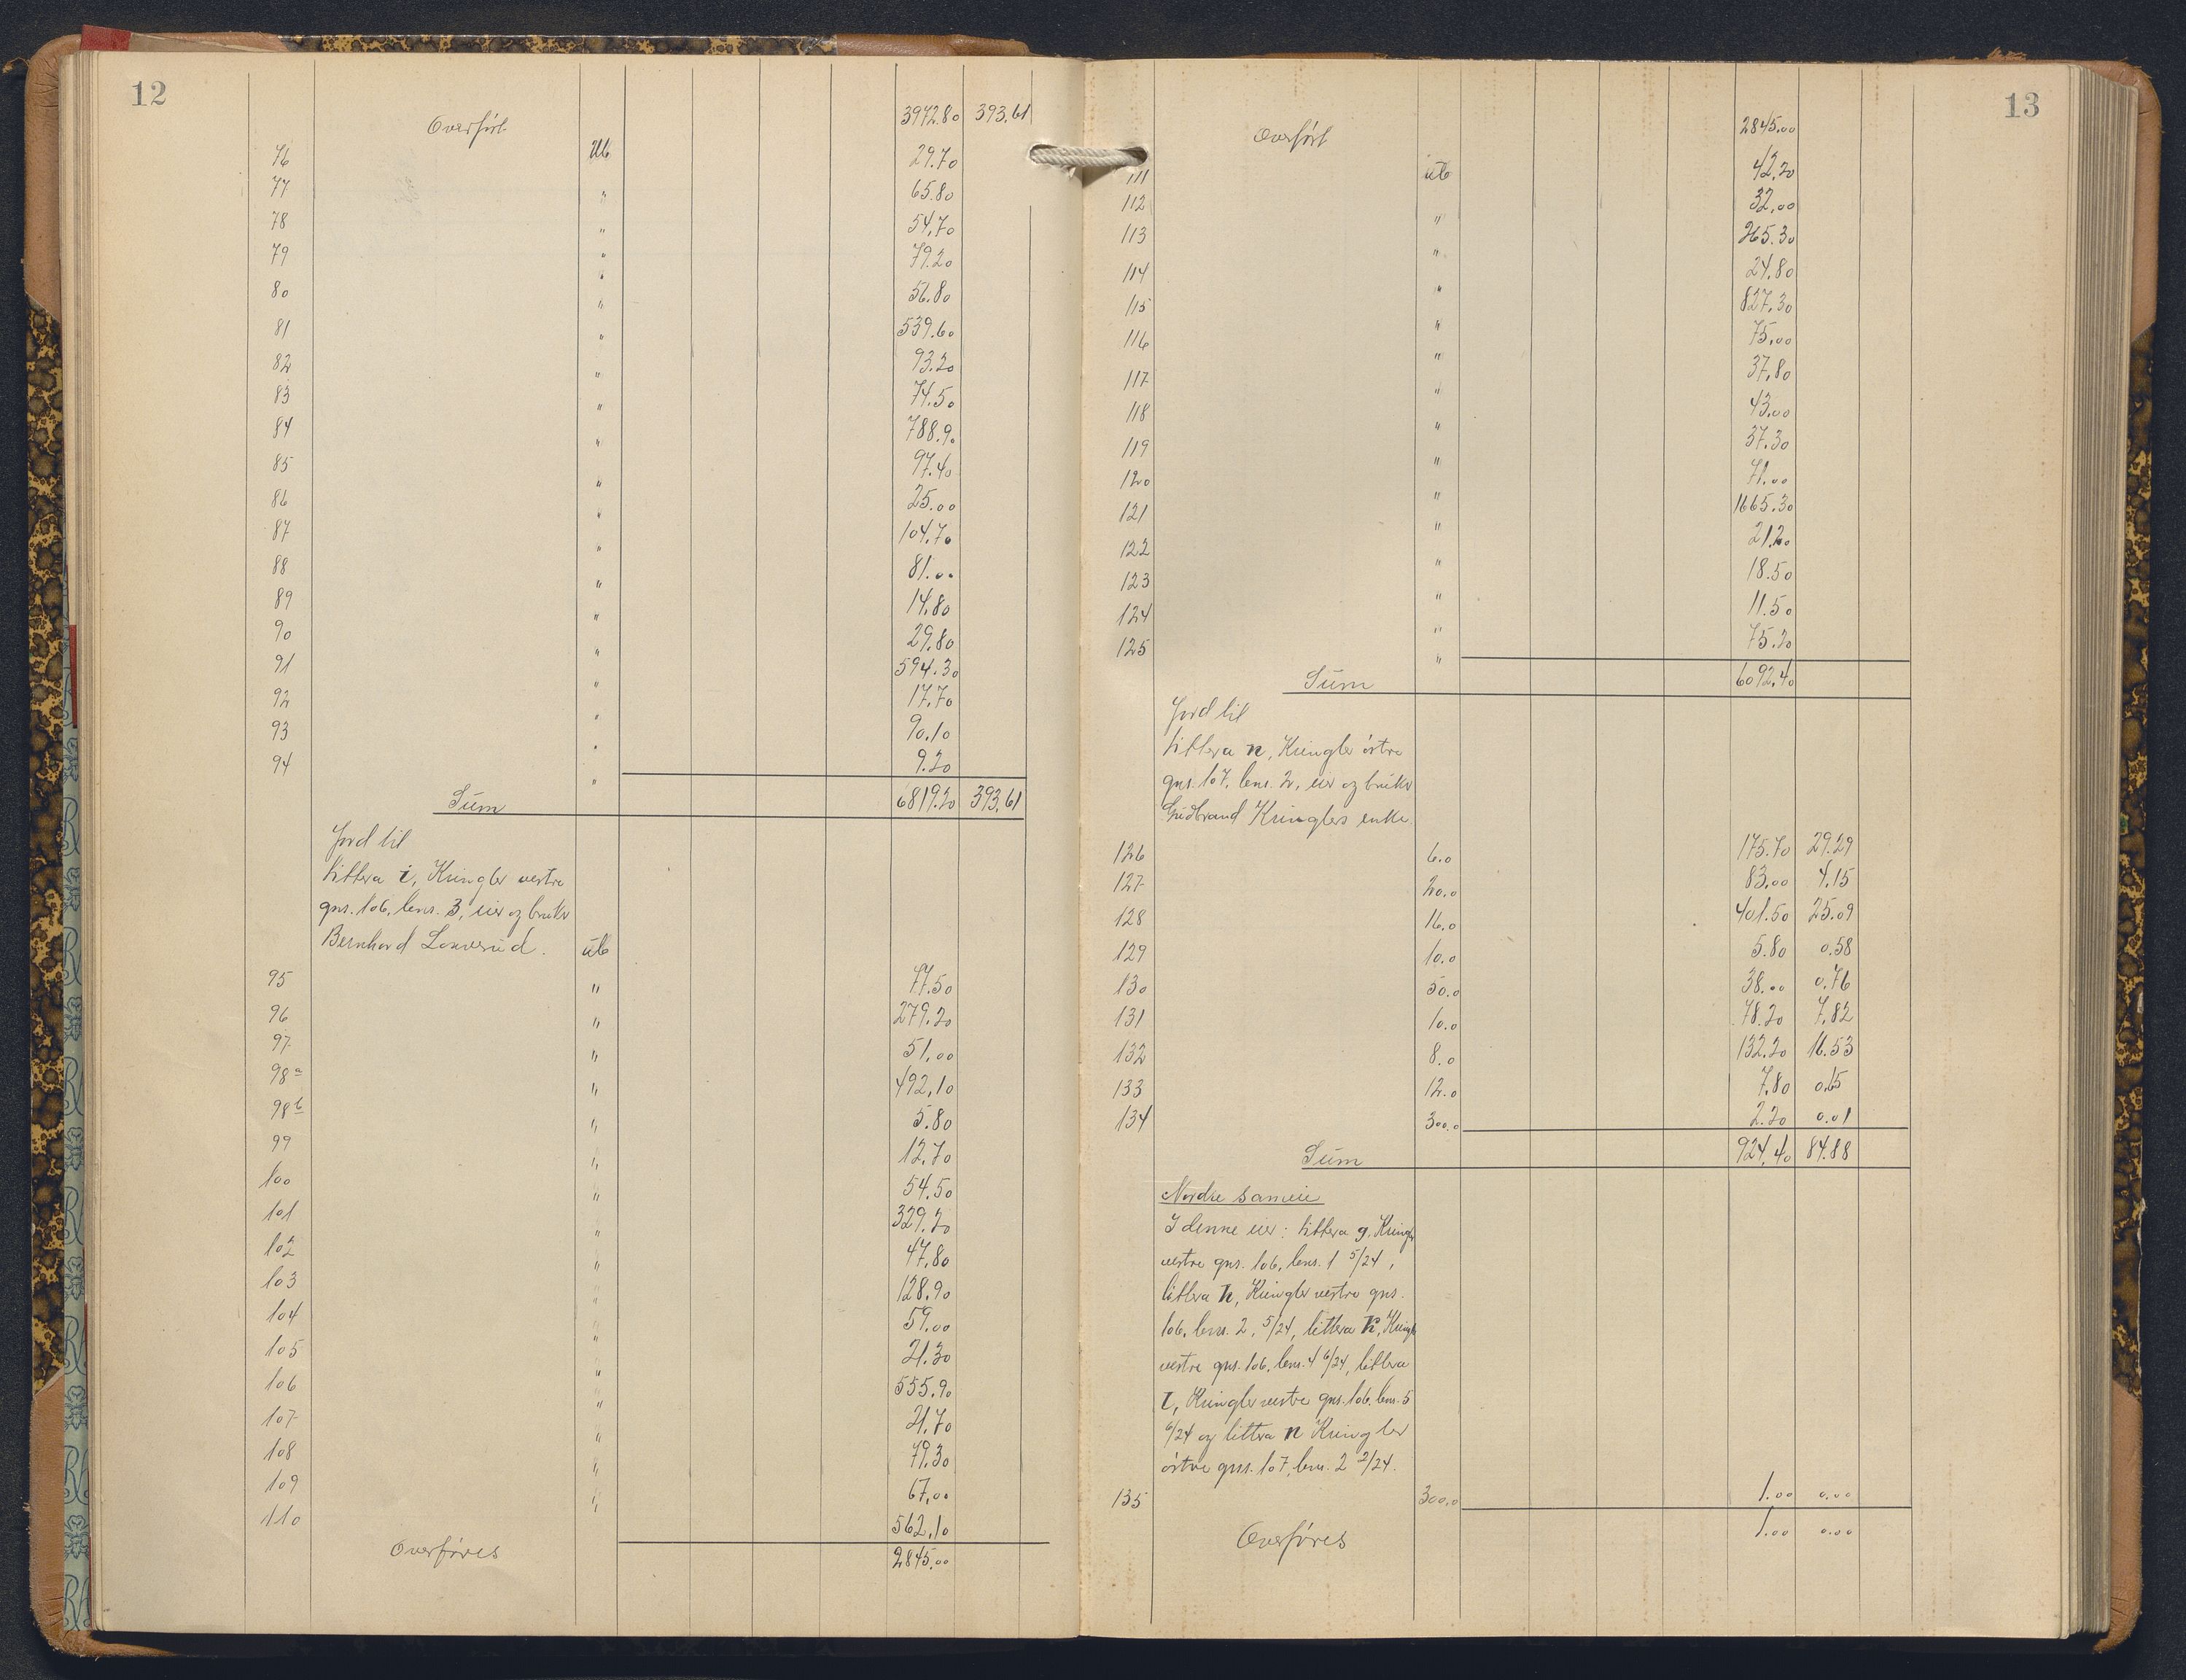 12
Overført 3972.80 393.61
76 Ub 29.70
77 " 65.80
78 " 54.70
79 " 79.20
80 " 56.80
81 " 539.60
82 " 93.20
83 " 74.50
84 " 788.90
85 " 97.40
86 " 25.00
87 " 104.70
88 " 81.00
89 " 14.80
90 " 29.80
91 " 594.30
92 " 17.70
93 " 90.10
94 " 9.20
Sum 6819.20 393.61
Jord til
littera i, Kringler vestre
gnr. 106, bnr. 3, eier og bruker
Bernhard Lonverud. ub
95 " 77.50
96 " 279.20
97 " 51.00
98a " 492.10
98b " 5.80
99 " 12.70
100 " 54.50
101 " 329.20
102 " 47.80
103 " 128.90
104 " 59.00
105 " 21.30
106 " 555.90
107 " 21.70
108 " 79.30
109 " 67.00
110 562.10
Overføres 2845.00
13
Overført 2845.00
111 ub 42.20
112 " 32.00
113 " 265.30
114 " 24.80
115 " 827.30
116 " 75.00
117 " 37.80
118 " 43.00
119 " 37.30
120 " 71.00
121 " 1665.30
122 " 21.20
123 " 18.50
124 " 11.50
125 " 75.20
Sum 6092.40
Jord til
littera n, Kringler østre
gnr. 107, bnr. 2, eier og bruker
Gudbrand Kringlers enke.
126 6.0 175.70 29.29
127 20.0 83.00 4.15
128 16.0 401.50 25.09
129 10.0 5.80 0.58
130 50.0 38.00 0.76
131 10.0 78.20 7.82
132 8.0 132.20 16.53
133 12.0 7.80 0.65
134 300.0 2.20 0.01
Sum 924.40 84.88
Nordre sameie
I denne eier: littera g, Kringler
vestre gnr. 106, bnr. 1 5/24,
littera h, Kringler vestre gnr.
106, bnr. 2, 5/24, littera k, Kringler
vestre gnr. 106, bnr. 4 6/24, littera
l, Kringler vestre gnr. 106, bnr. 5
6/24 og littera n Kringler
østre gnr. 107, bnr. 2 2/24.
135 300.0 1.00 0.00
Overføres 1.00 0.00